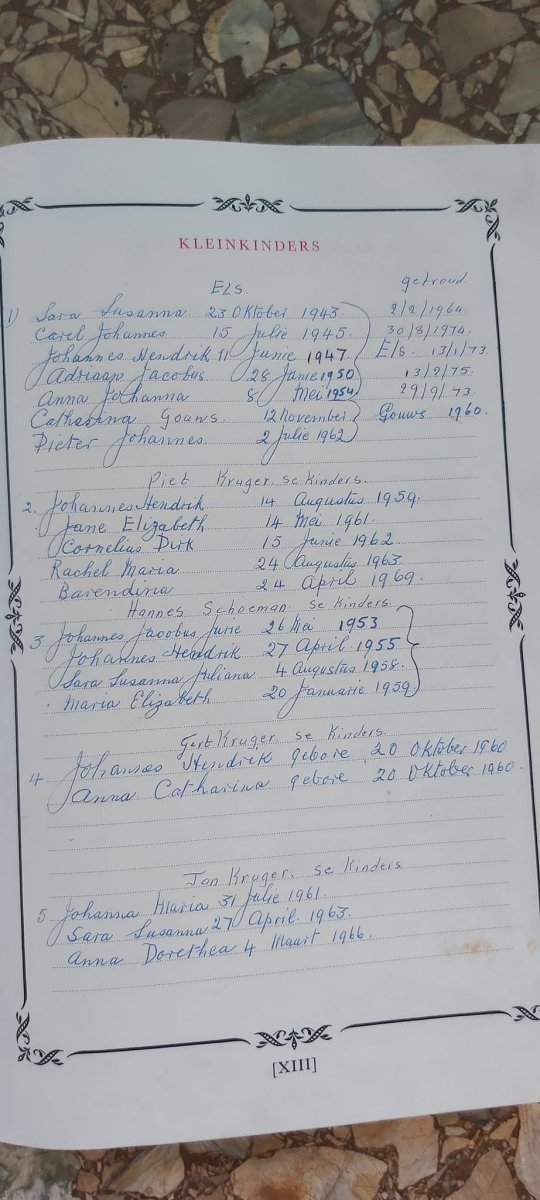 KLEINKINDERS
Els. getroud
1) Sara Susanna 23 Oktober 1943 2/2/1964.
Carel Johannes 15 Julie 1945. 30/8/1974.
Johannes Hendrik 11 Junie 1947 Els. 13/1/73.
Adriaan Jacobus 28 Junie 1950 13/2/75.
Anna Johanna 8 Mei 1954 29/9/73.
Catharina Gouws. 12 November Gouws 1960.
Pieter Johannes. 2 Julie 1962
Piet Kruger. se kinders.
2. Johannes Hendrik 14 Augustus 1959.
Jane Elizabeth 14 Mei 1961.
Cornelius Dirk 15 Junie 1962.
Rachel Maria 24 Augustus 1963.
Barendina 24 April 1969.
Hannes Schoeman se kinders
3 Johannes Jacobus Jurie 26 Mei 1953
Johannes Hendrik 27 April 1955
Sara Susanna Juliana 4 Augustus 1958.
Maria Elizabeth 20 Januarie 1959.
Gert Kruger. se kinders.
4 Johannes Hendrik gebore 20 Oktober 1960
Anna Catharina gebore 20 Oktober 1960.
Jan Kruger. se kinders
5 Johanna Maria 31 Julie 1961.
Sara Susanna 27 April. 1963.
Anna Dorethea 4 Maart 1966.
[XIII]